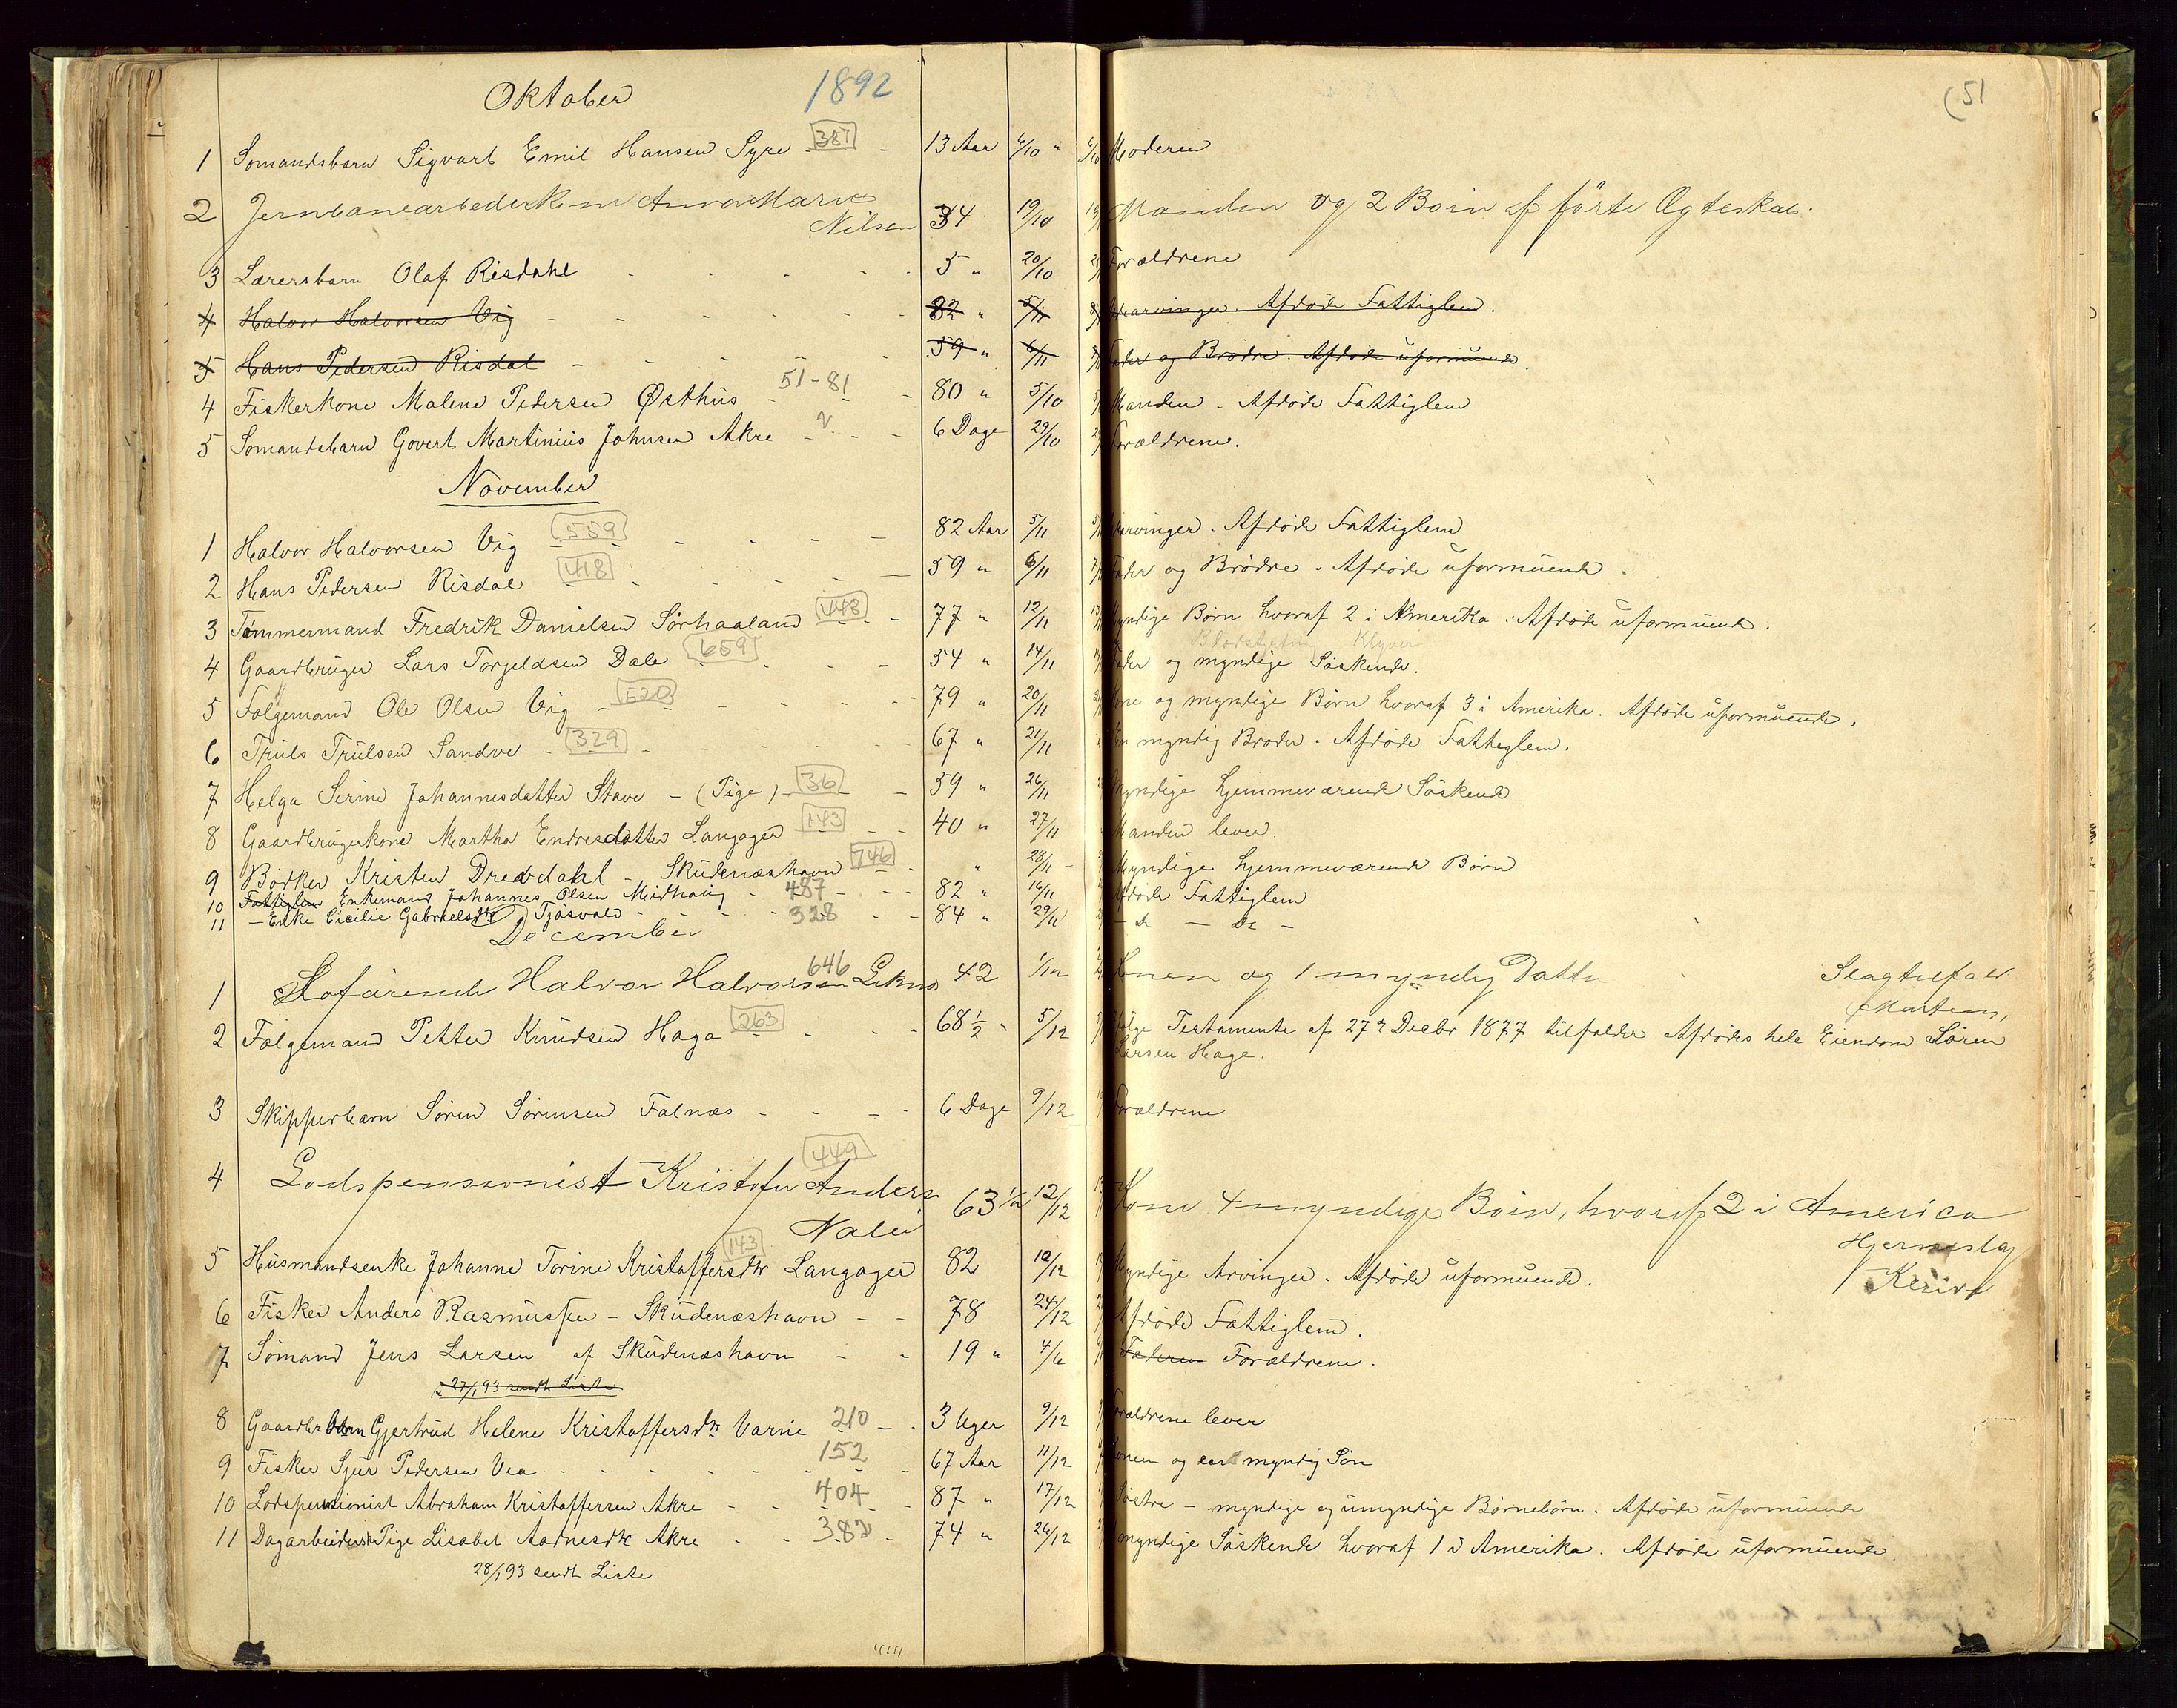 Oktober 1892 (51
1 Sømandsbarn Sigvart Emil Hansen Syre 387 - 13 Aar 6/10 " Moderen
2 Jernbanearbederkone Anna Marie
Nilsen 34 19/10 Manden og 2 Børn af förste Ægteskab.
3 Lærersbarn Olaf Risdahl - - - - - 5 " 20/10 Forældrene
4 Halvor Halvorsen Vig - - - - - 82 " 5/11 Udarvinger. Afdøde Fattiglem.
5 Hans Pedersen Risdal - - - - - 59 " 6/11 Fader og Brødre. Afdøde uformuende.
4 Fiskerkone Malene Pedersen Østhus - 51-81 - 80 " 5/10 Manden. Afdøde Fattiglem
5 Sømandsbarn Govert Martinius Johnsen Akre - - - 6 Dage 29/10 Forældrene.
November
1 Halvor Halvorsen Vig 559 - - - - 82 Aar 5/11 Udarvinger. Afdøde Fattiglem
2 Hans Pedersen Risdal 418 - - - - 59 " 6/11 Fader og Brødre. Afdøde uformuende.
3 Tømmermand Fredrik Danielsen Sörhaaland 448 - 77 " 12/11 Myndige Børn hvoraf 2 i Amerika. Afdøde uformuende.
Klyver
4 Gaardbruger Lars Torgeldsen Dale 659 - - 54 " 14/11 Fader og myndige Søskende.
5 Følgemand Ole Olsen Vig - 520 - - - - 79 " 20/11 Kone og myndige Børn hvoraf 3 i Amerika. Afdøde uformuende.
6 Truls Trulsen Sandve - 329 - - - - 67 " 21/11 En myndig Broder. Afdøde Fattiglem.
7 Helga Serine Johannesdatter Stave - (Pige) - 36 - 59 " 26/11 Myndige hjemmeværende Søskende
8 Gaardbrugerkone Martha Endresdatter Langager 143 - - 40 " 27/11 Manden lever.
9 Bødker Kristen Drevdahl - Skudenæshavn 746 - " 28/11 - Myndige hjemmeværende Børn
10 Fattiglem Enkemand Johannes Olsen Midhaug - 487 - - 82 " 16/11 Afdøde Fattiglem
11 - Enke Cicilie Gabrielsdtr Tjøsvold - - 328 - - 84 " 29/11 - do - do -
December
1 Søfarende Halvor Halvorsen 646 42 1/12 Konen og 1 myndig Datter
2 Følgemand Petter Knudsen Haga 263 - - 68 1/2 " 5/12 Ifølge Testamente af 27de Decbr 1877 tilfalder Afdødes hele Eiendom Sören
Larsen Hage.
3 Skipperbarn Sören Sörensen Falnæs - - - - 6 Dage 9/12 Forældrene
449
4 Lodspensionist Kristofer Anders
63 1/2 12/12 Kone 4 myndige Børn, hvoraf 2 i America
5 Husmandsenke Johanne Torine Kristoffersdtr 143 Langager 82 10/12 Myndige Arvinger. Afdøde uformuende.
6 Fisker Anders Rasmussen - Skudenæshavn - - 78 24/12 Afdøde Fattiglem.
7 Sømand Jens Larsen af Skudenæshavn - - 19 " 4/6 Faderen Forældrene.
27/1 93 sendt Liste
8 Gaardbrbarn Gjertrud Helene Kristoffersdtr Varne 210 - 3 Uger 9/12 Forældrene lever
9 Fisker Sjur Pedersen Vea - - - 152 - - 67 Aar 11/12 Konen og en myndig Søn
10 Lodspensionist Abraham Kristoffersen Akre - - 404 - 87 " 17/12 Søstre - myndige og umyndige Børnebørn. Afdøde uformuende
11 Dagarbeiderske Pige Lisabet Aadnesdtr Akre - - 382 - 74 " 26/12 myndige Søskende hvoraf 1 i Amerika. Afdøde uformuende.
28/1 93 sendt Liste